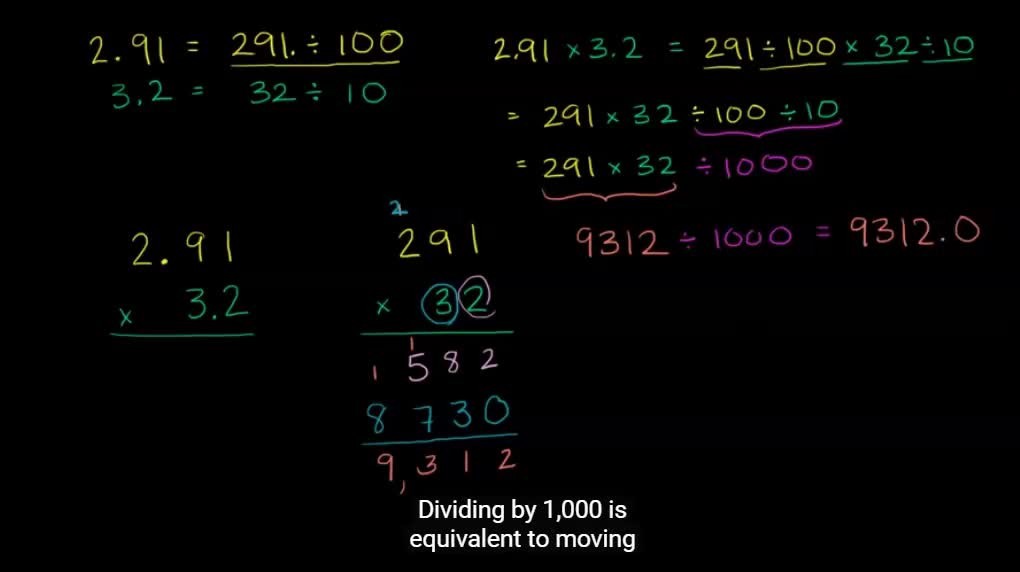 2.91 = 291. ÷ 100
3.2 = 32 ÷ 10
2.91 × 3.2 = 291 ÷ 100 × 32 ÷ 10
= 291 × 32 ÷ 100 ÷ 10
= 291 × 32 ÷ 1000
9312 ÷ 1000 = 9312.0
2.91
× 3.2
2
291
× 32
1
1 582
8730
9,312
Dividing by 1,000 is
equivalent to moving